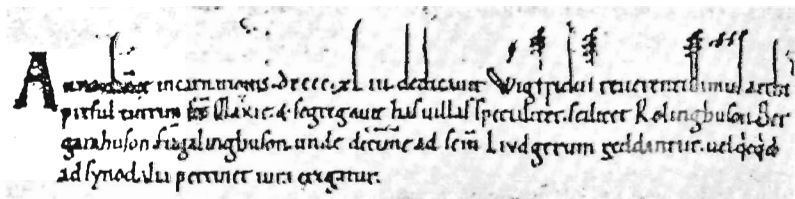 Anno dnice incarnationis. dcccc. xl iii. dedicavit Wigfridus reverentissimus archi
piscus scę Marię. & segregavit has villas specialiter. scilicet Rolingbuson Ber
garahuson Fingalingbuson. unde decime ad scm Liudgerum reddantur. vel qcqd
ad synodalia pertinet iura exigatur.